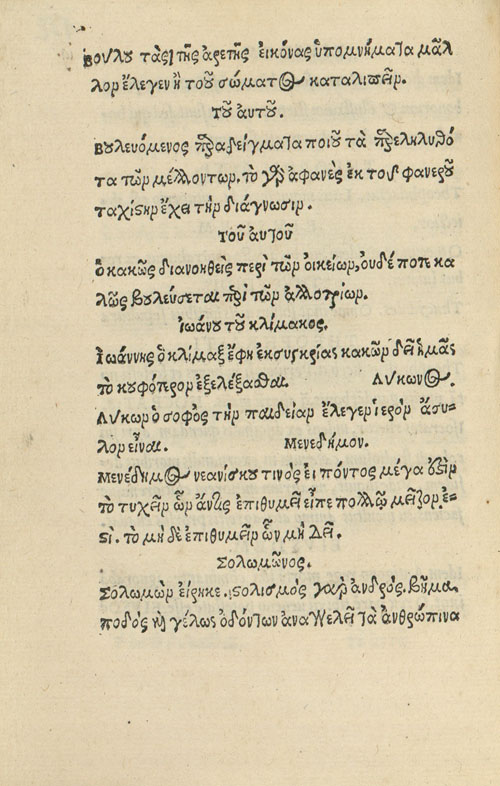 βούλου τὰς τῆς ἀρετῆς εἰκόνας ὑπομνήματα μᾶλ
λον ἔλεγεν ἢ τοῦ σώματος καταλιπεῖν.
Τοῦ αὐτοῦ.
Βουλευόμενος παραδείγματα ποιοῦ τὰ παρεληλυθό
τα τῶν μελλόντων. τὸ γὰρ ἀφανὲς ἐκ τοῦ φανεροῦ
ταχίστην ἔχει τὴν διάγνωσιν.
Τοῦ αὐτοῦ
Ὁ κακῶς διανοηθεὶς περὶ τῶν οἰκείων, οὐδέ ποτε κα
λῶς βουλεύσεται περὶ τῶν ἀλλοτρίων.
Ἰωάνου τοῦ κλίμακος.
Ἰωάννης ὁ κλίμαξ ἔφη ἐκ συγκρίας κακῶν δεῖ ἡμᾶς
τὸ κουφότερον ἐξελέξασθαι. Λύκωνος.
Λύκων ὁ σοφὸς τὴν παιδείαν ἔλεγεν ἱερὸν ἄσυ-
λον εἶναι. Μενεδήμου.
Μενεδήμος νεανίσκου τινὸς εἰπόντος μέγα ἐστὶν
τὸ τυχεῖν ὧν ἄν τις ἐπιθυμεῖ εἶπε πολλῷ μεῖζον ἐ-
στὶ. τὸ μὴ δὲ ἐπιθυμεῖν ὧν μὴ δεῖ.
Σολωμῶνος.
Σολωμὼν εἴρηκε. στολισμὸς γὰρ ἀνδρός. βῆμα
ποδός καὶ γέλως ὀδόντων ἀναγγελεῖ τὰ ἀνθρώπινα